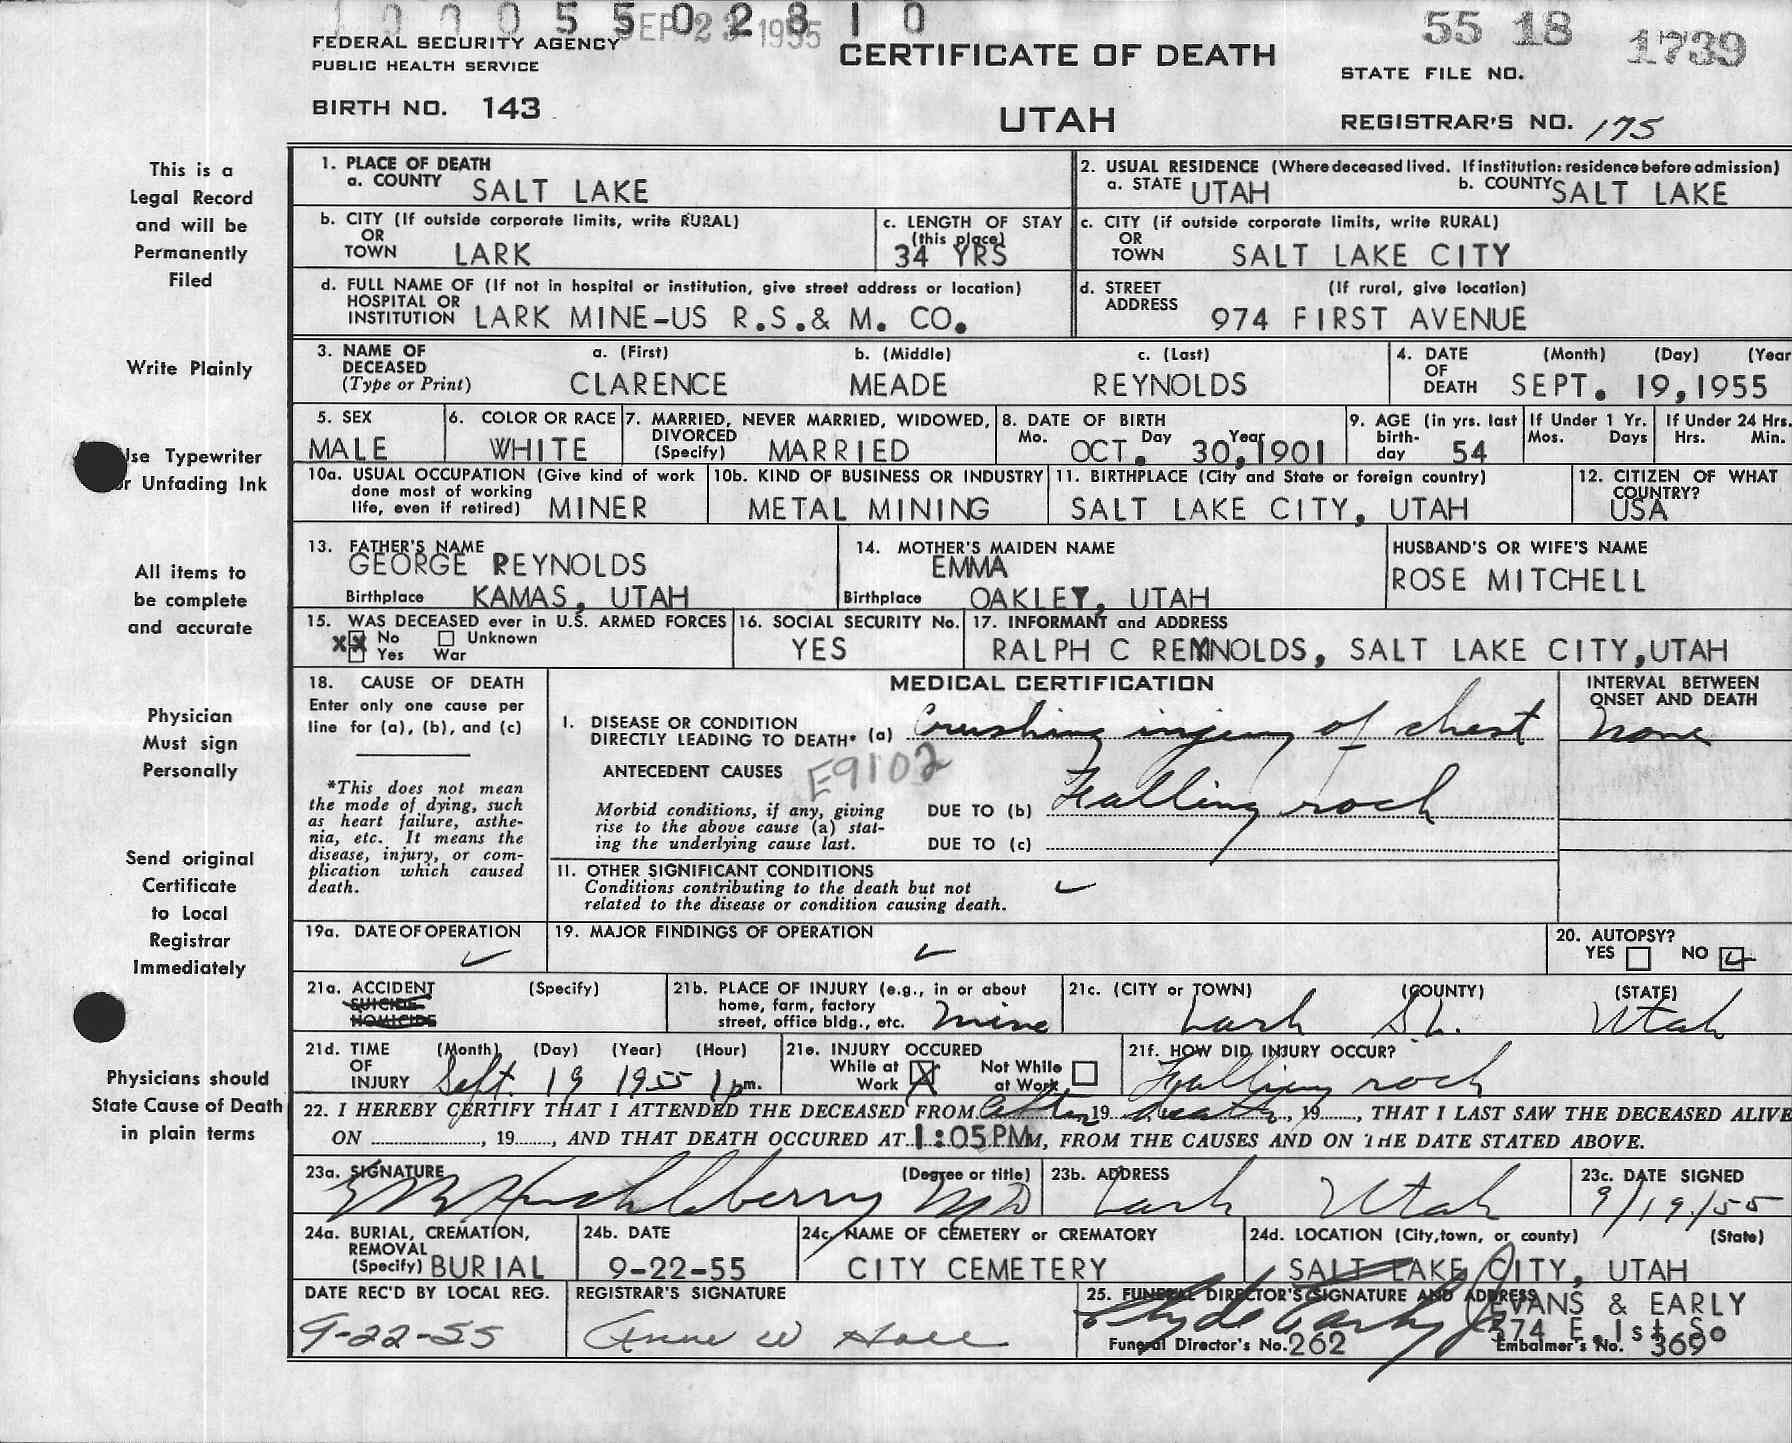 1 0 0 0 5 5 0 2 8 1 0
SEP 23 1955
55 18 1739
FEDERAL SECURITY AGENCY
PUBLIC HEALTH SERVICE
CERTIFICATE OF DEATH
STATE FILE NO.
BIRTH NO. 143
UTAH
REGISTRAR'S NO. 175
This is a
Legal Record
and will be
Permanently
Filed
Write Plainly
Use Typewriter
or Unfading Ink
All items to
be complete
and accurate
Physician
Must sign
Personally
Send original
Certificate
to Local
Registrar
Immediately
Physicians should
State Cause of Death
in plain terms
1. PLACE OF DEATH
a. COUNTY SALT LAKE
2. USUAL RESIDENCE (Where deceased lived. If institution: residence before admission)
a. STATE UTAH b. COUNTY SALT LAKE
b. CITY (If outside corporate limits, write RURAL)
OR
TOWN LARK
c. LENGTH OF STAY
(this place)
34 YRS
c. CITY (if outside corporate limits, write RURAL)
OR
TOWN SALT LAKE CITY
d. FULL NAME OF (If not in hospital or institution, give street address or location)
HOSPITAL OR
INSTITUTION LARK MINE-US R.S.& M. CO.
d. STREET (If rural, give location)
ADDRESS 974 FIRST AVENUE
3. NAME OF DECEASED (Type or Print)
a. (First) b. (Middle) c. (Last)
CLARENCE MEADE REYNOLDS
4. DATE OF DEATH (Month) (Day) (Year
SEPT. 19,1955
5. SEX
MALE
6. COLOR OR RACE
WHITE
7. MARRIED, NEVER MARRIED, WIDOWED,
DIVORCED
(Specify) MARRIED
8. DATE OF BIRTH
Mo. Day Year
OCT. 30,1901
9. AGE (in yrs. last
birth-
day 54
If Under 1 Yr.
Mos. Days
If Under 24 Hrs.
Hrs. Min.
10a. USUAL OCCUPATION (Give kind of work
done most of working
life, even if retired) MINER
10b. KIND OF BUSINESS OR INDUSTRY
METAL MINING
11. BIRTHPLACE (City and State or foreign country)
SALT LAKE CITY, UTAH
12. CITIZEN OF WHAT
COUNTRY?
USA
13. FATHER'S NAME
GEORGE REYNOLDS
Birthplace KAMAS, UTAH
14. MOTHER'S MAIDEN NAME
EMMA
Birthplace OAKLEY, UTAH
HUSBAND'S OR WIFE'S NAME
ROSE MITCHELL
15. WAS DECEASED ever in U.S. ARMED FORCES
XX No Unknown
Yes War
16. SOCIAL SECURITY No.
YES
17. INFORMANT and ADDRESS
RALPH C REYNOLDS, SALT LAKE CITY,UTAH
18. CAUSE OF DEATH
Enter only one cause per
line for (a), (b), and (c)
*This does not mean
the mode of dying, such
as heart failure, asthe-
nia, etc. It means the
disease, injury, or com-
plication which caused
death.
MEDICAL CERTIFICATION
INTERVAL BETWEEN
ONSET AND DEATH
I. DISEASE OR CONDITION
DIRECTLY LEADING TO DEATH* (a) Crushing injury of chest
none
ANTECEDENT CAUSES E9102
Morbid conditions, if any, giving
rise to the above cause (a) stat-
ing the underlying cause last.
DUE TO (b) Falling rock
DUE TO (c)
11. OTHER SIGNIFICANT CONDITIONS
Conditions contributing to the death but not
related to the disease or condition causing death.
19a. DATE OF OPERATION
19. MAJOR FINDINGS OF OPERATION
20. AUTOPSY?
YES NO
21a. ACCIDENT (Specify)
SUICIDE
HOMICIDE
21b. PLACE OF INJURY (e.g., in or about
home, farm, factory
street, office bldg., etc. mine
21c. (CITY or TOWN) (COUNTY) (STATE)
Lark S.L. Utah
21d. TIME OF INJURY (Month) (Day) (Year) (Hour)
Sept. 19 1955 1 pm.
21e. INJURY OCCURED
While at Work X Not While at Work
21f. HOW DID INJURY OCCUR?
Falling rock
22. I HEREBY CERTIFY THAT I ATTENDED THE DECEASED FROM after 19 death, 19......, THAT I LAST SAW THE DECEASED ALIVE
ON ...................., 19......, AND THAT DEATH OCCURED AT 1:05PM M, FROM THE CAUSES AND ON THE DATE STATED ABOVE.
23a. SIGNATURE (Degree or title)
Huckleberry MD
23b. ADDRESS
Lark Utah
23c. DATE SIGNED
9/19/55
24a. BURIAL, CREMATION,
REMOVAL
(Specify) BURIAL
24b. DATE
9-22-55
24c. NAME OF CEMETERY or CREMATORY
CITY CEMETERY
24d. LOCATION (City,town, or county) (State)
SALT LAKE CITY, UTAH
DATE REC'D BY LOCAL REG.
9-22-55
REGISTRAR'S SIGNATURE
Anne W Hall
25. FUNERAL DIRECTOR'S SIGNATURE AND ADDRESS
Clyde Early Jr
EVANS & EARLY
574 E.1st So
Funeral Director's No. 262
Embalmer's No. 369